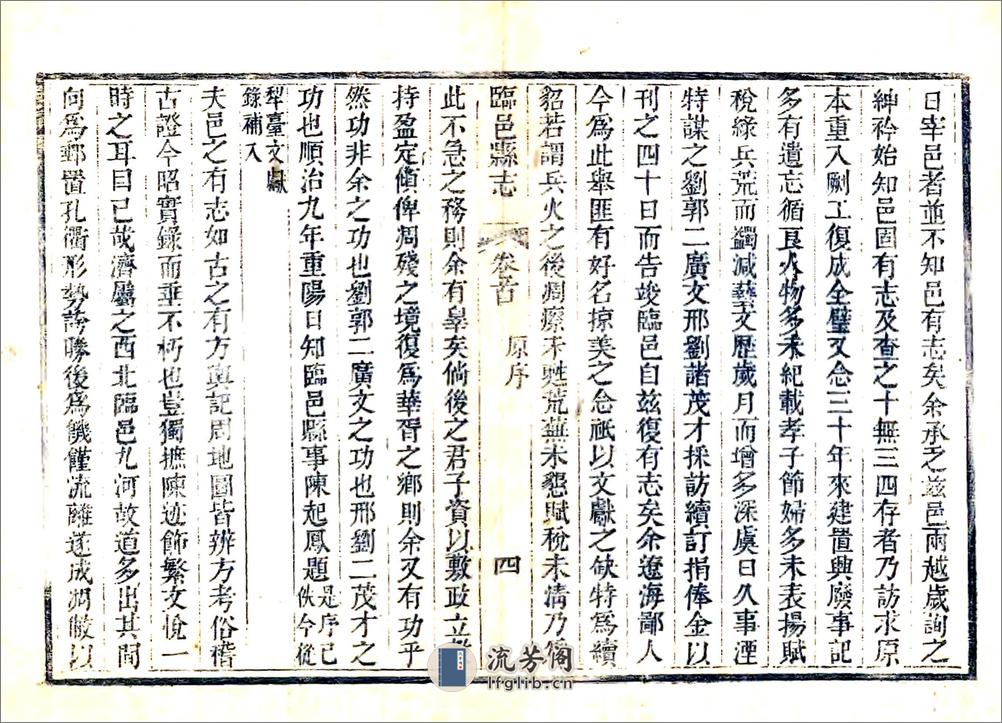 日宰邑者並不知邑有志矣余承乏茲邑兩越歲詢之
紳衿始知邑固有志及查之十無三四存者乃訪求原
本重入剞工復成全璧又念三十年來建置興廢事記
多有遺忘循良人物多未紀載孝子節婦多未表揚賦
稅緣兵荒而蠲減藝文歷歲月而增多深虞日久事湮
特謀之劉郭二廣文邢劉諸茂才採訪續訂捐俸金以
刊之四十日而告竣臨邑自茲復有志矣余遼海鄙人
今為此舉匪有好名掠美之念祇以文獻之缺特為續
貂若謂兵火之後凋瘵未甦荒蕪未懇賦稅未淸乃
臨邑縣志
卷首
原序
四
此不急之務則余有辠矣倘後之君子資以敷政立
持盈定傾俾凋殘之境復爲華胥之鄉則余又有功乎
然功非余之功也劉郭二廣文之功也邢劉二茂才之
功也順治九年重陽日知臨邑縣事陳起鳳題
是序已
佚今從
犁臺文獻
錄補入
夫邑之有志如古之有方輿記周地圖皆辨方考俗稽
古證今昭實錄而垂不朽也豈獨摭陳迹飾繁文悅一
時之耳目已哉濟屬之西北臨邑九河故道多出其間
向爲郵置孔衢形勢誇勝後爲饑饉流離遂成凋敝以
流芳阁
lfglib.cn